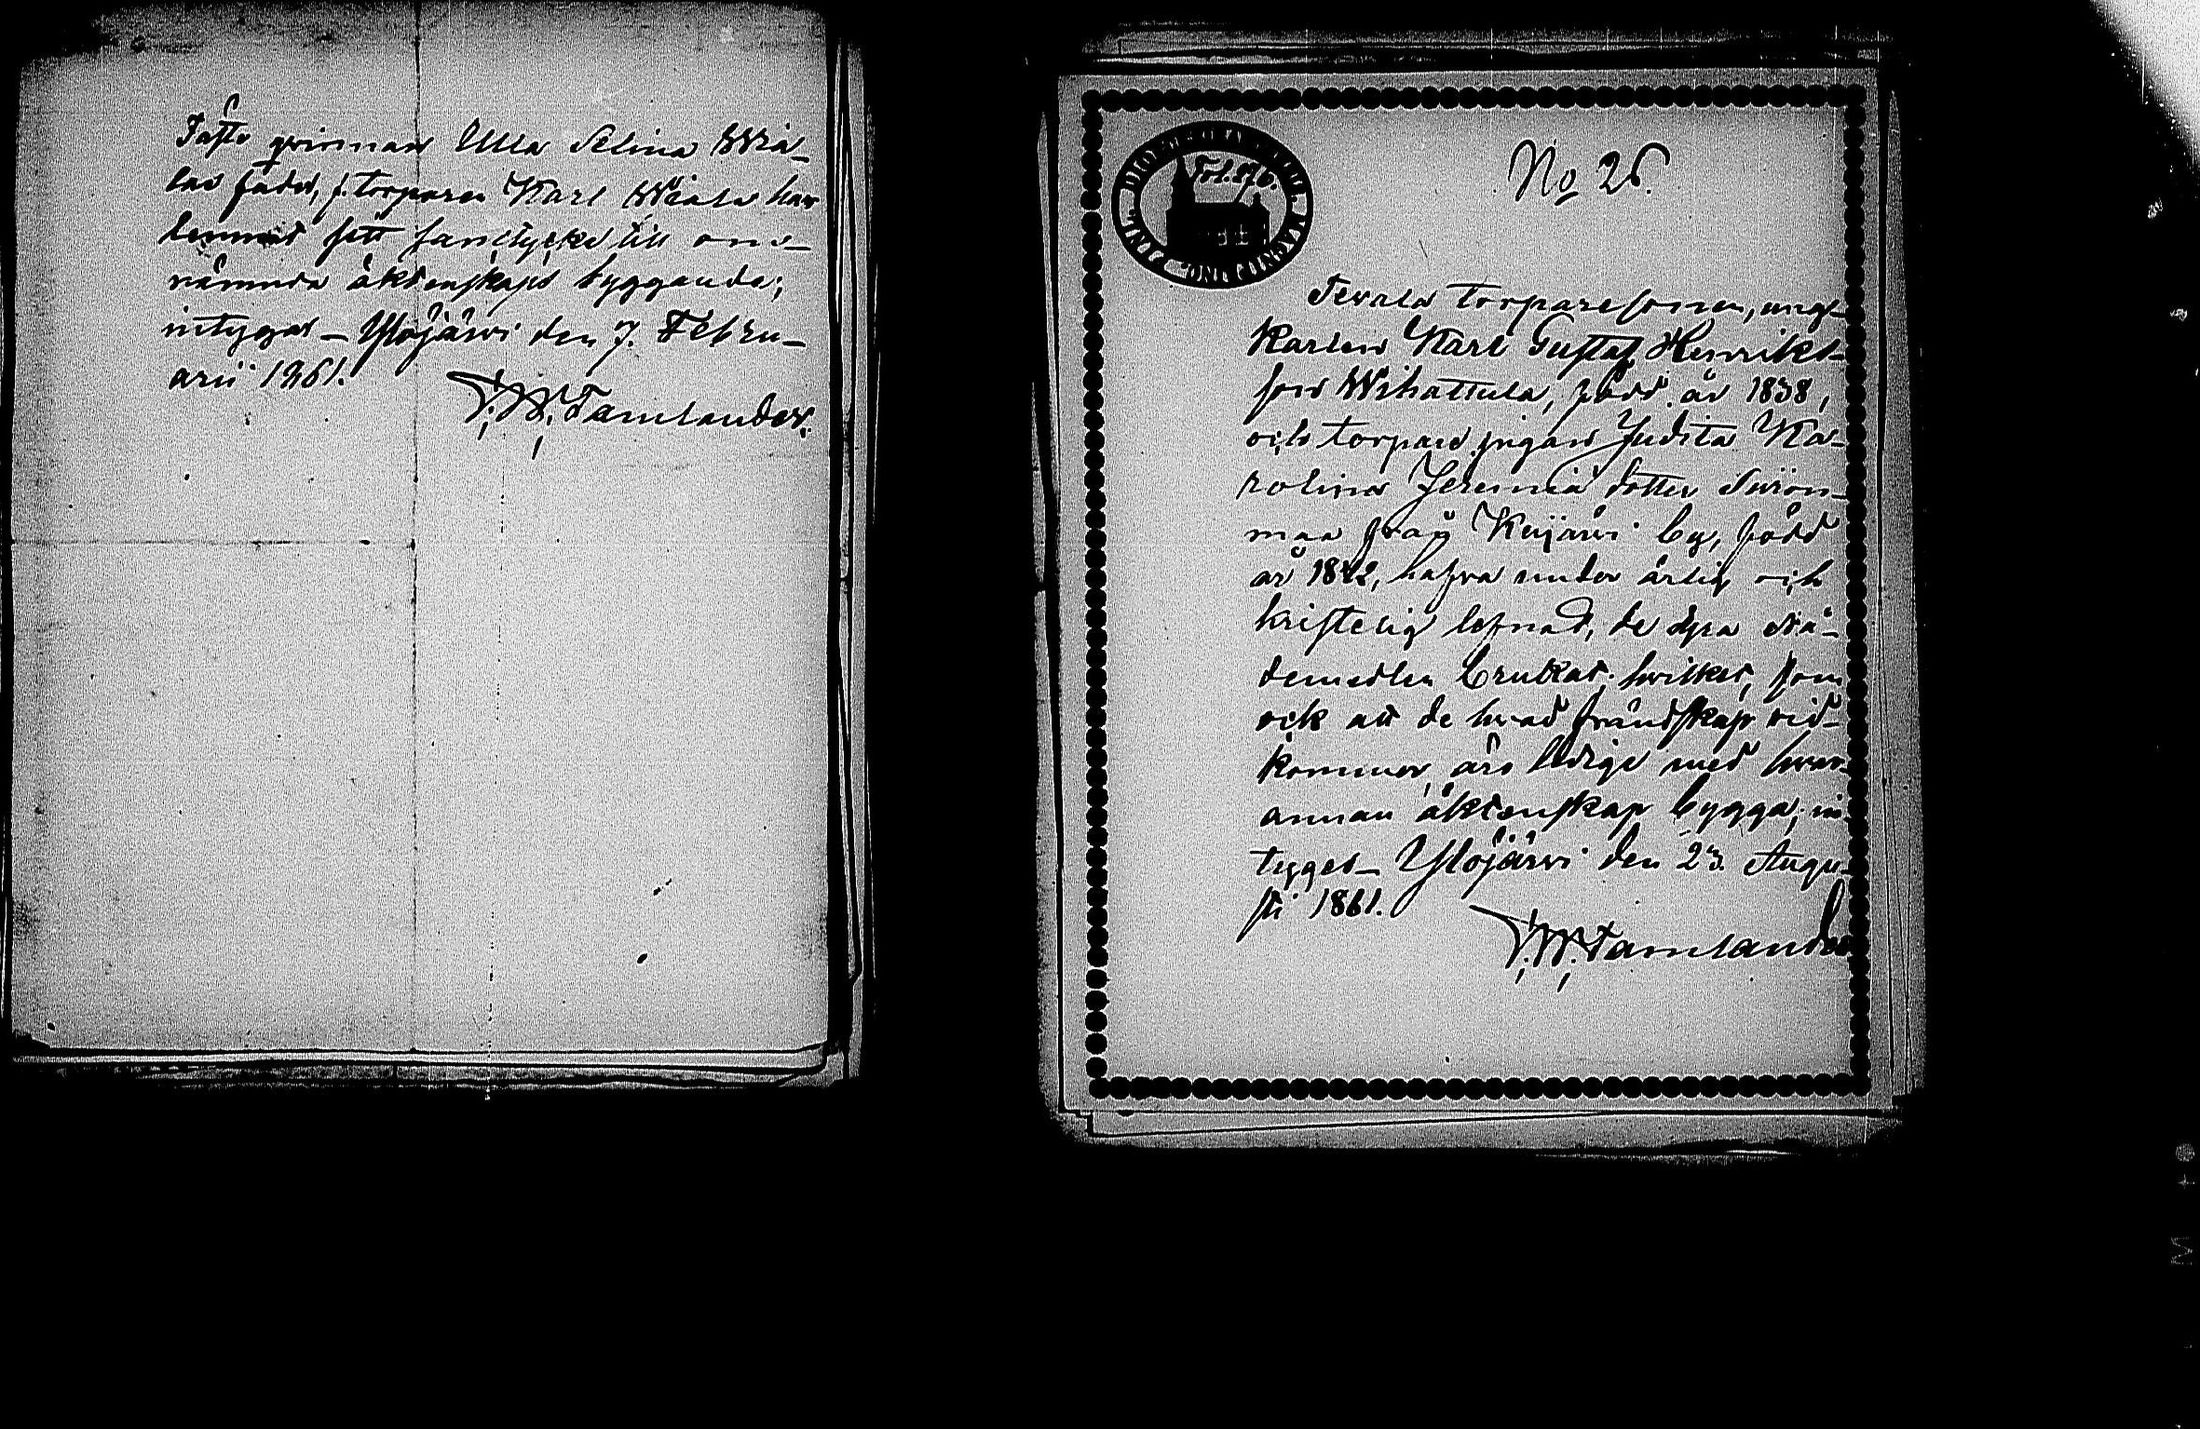 Fäste qwinnan Ulla Selina Wiä-
las fader, f. torparen Karl Wiäla har
lemnat sitt samtycke till om-
nämnda äktenskaps byggande;
intygas – Ylöjärwi den 7. Febru-
arii 1861.
F. W. Tamlander.
No 26.
Fol. 876.
Terala torparesonen, ung-
karlen Karl Gustaf Henriks-
son Wihattula, född år 1838,
och torpare pigan Judita Ka-
rolina Jeremiä dotter Surön-
maa från Kujärwi by, född
år 1842, hafva under ärlig och
kristelig lefnad, de dyra Nå-
demedlen brukat; hwilket, som
ock att de hwad frändskap wid-
kommer, äro ledige med hwar-
annan äktenskap bygga; in-
tyges – Ylöjärwi den 23. Augu-
sti 1861.
F. W. Tamlander